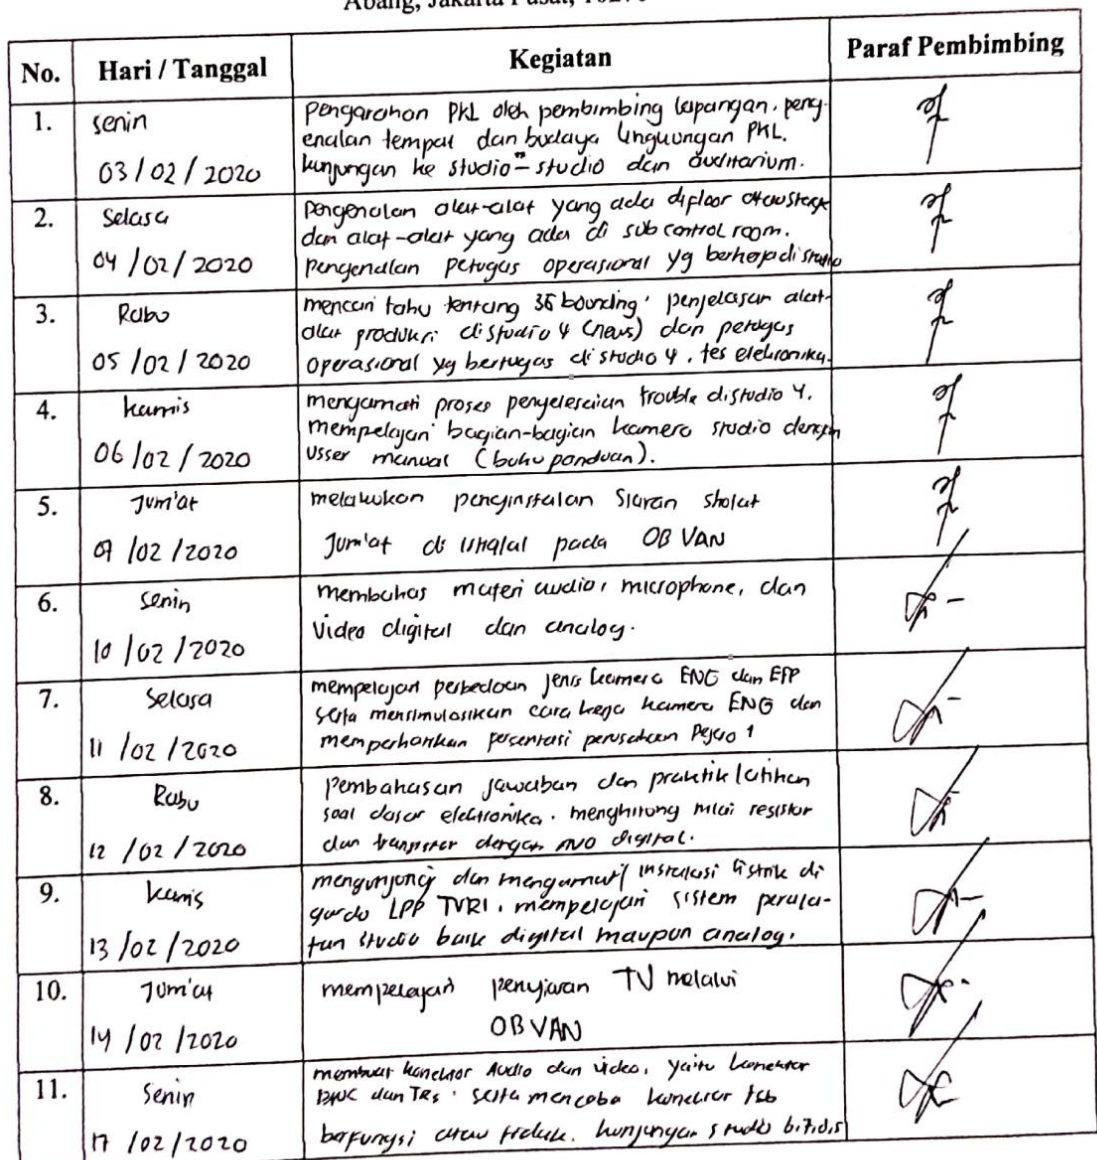 Abang, Jakarta Pusat, 10270
No. Hari / Tanggal Kegiatan Paraf Pembimbing
1. Senin
03/02/2020
Pengarahan PKL oleh pembimbing lapangan. peng-
enalan tempat dan budaya lingkungan PKL.
kunjungan ke studio-studio dan auditorium.
2. Selasa
04/02/2020
Pengenalan alat-alat yang ada difloor atau stage
dan alat-alat yang ada di sub control room.
pengenalan petugas operasional yg berkerja di studio
3. Rabu
05/02/2020
mencari tahu tentang bounding, penjelasan alat-
alat produksi distudio 4 (news) dan petugas
operasional yg bertugas di studio 4, tes elektronika.
4. kamis
06/02/2020
mengamati proses penyelesaian trouble distudio 4.
mempelajari bagian-bagian kamera studio dengan
usser manual (buku panduan).
5. Jum'at
07/02/2020
melakukan penginstalan Siaran sholat
Jum'at di istiqlal pada OB VAN
6. Senin
10/02/2020
membahas materi audio, microphone, dan
video digital dan analog.
7. Selasa
11/02/2020
mempelajari perbedaan jenis kamera ENG dan EFP
serta mensimulasikan cara kerja kamera ENG dan
memperhatikan persentasi perusahaan 1
8. Rabu
12/02/2020
Pembahasan jawaban dan praktik latihan
soal dasar elektronika. menghitung nilai resistor
dan transistor dengan AVO digital.
9. kamis
13/02/2020
mengunjungi dan mengamati instalasi listrik di
gardu LPP TVRI, mempelajari sistem perala-
tan studio baik digital maupun analog.
10. Jum'at
14/02/2020
mempelajari penyiaran TV melalui
OB VAN
11. Senin
17/02/2020
membuat konektor Audio dan video, yaitu konektor
BNC dan TRS. serta mencoba konektor tsb
berfungsi atau tidak. kunjungan studio